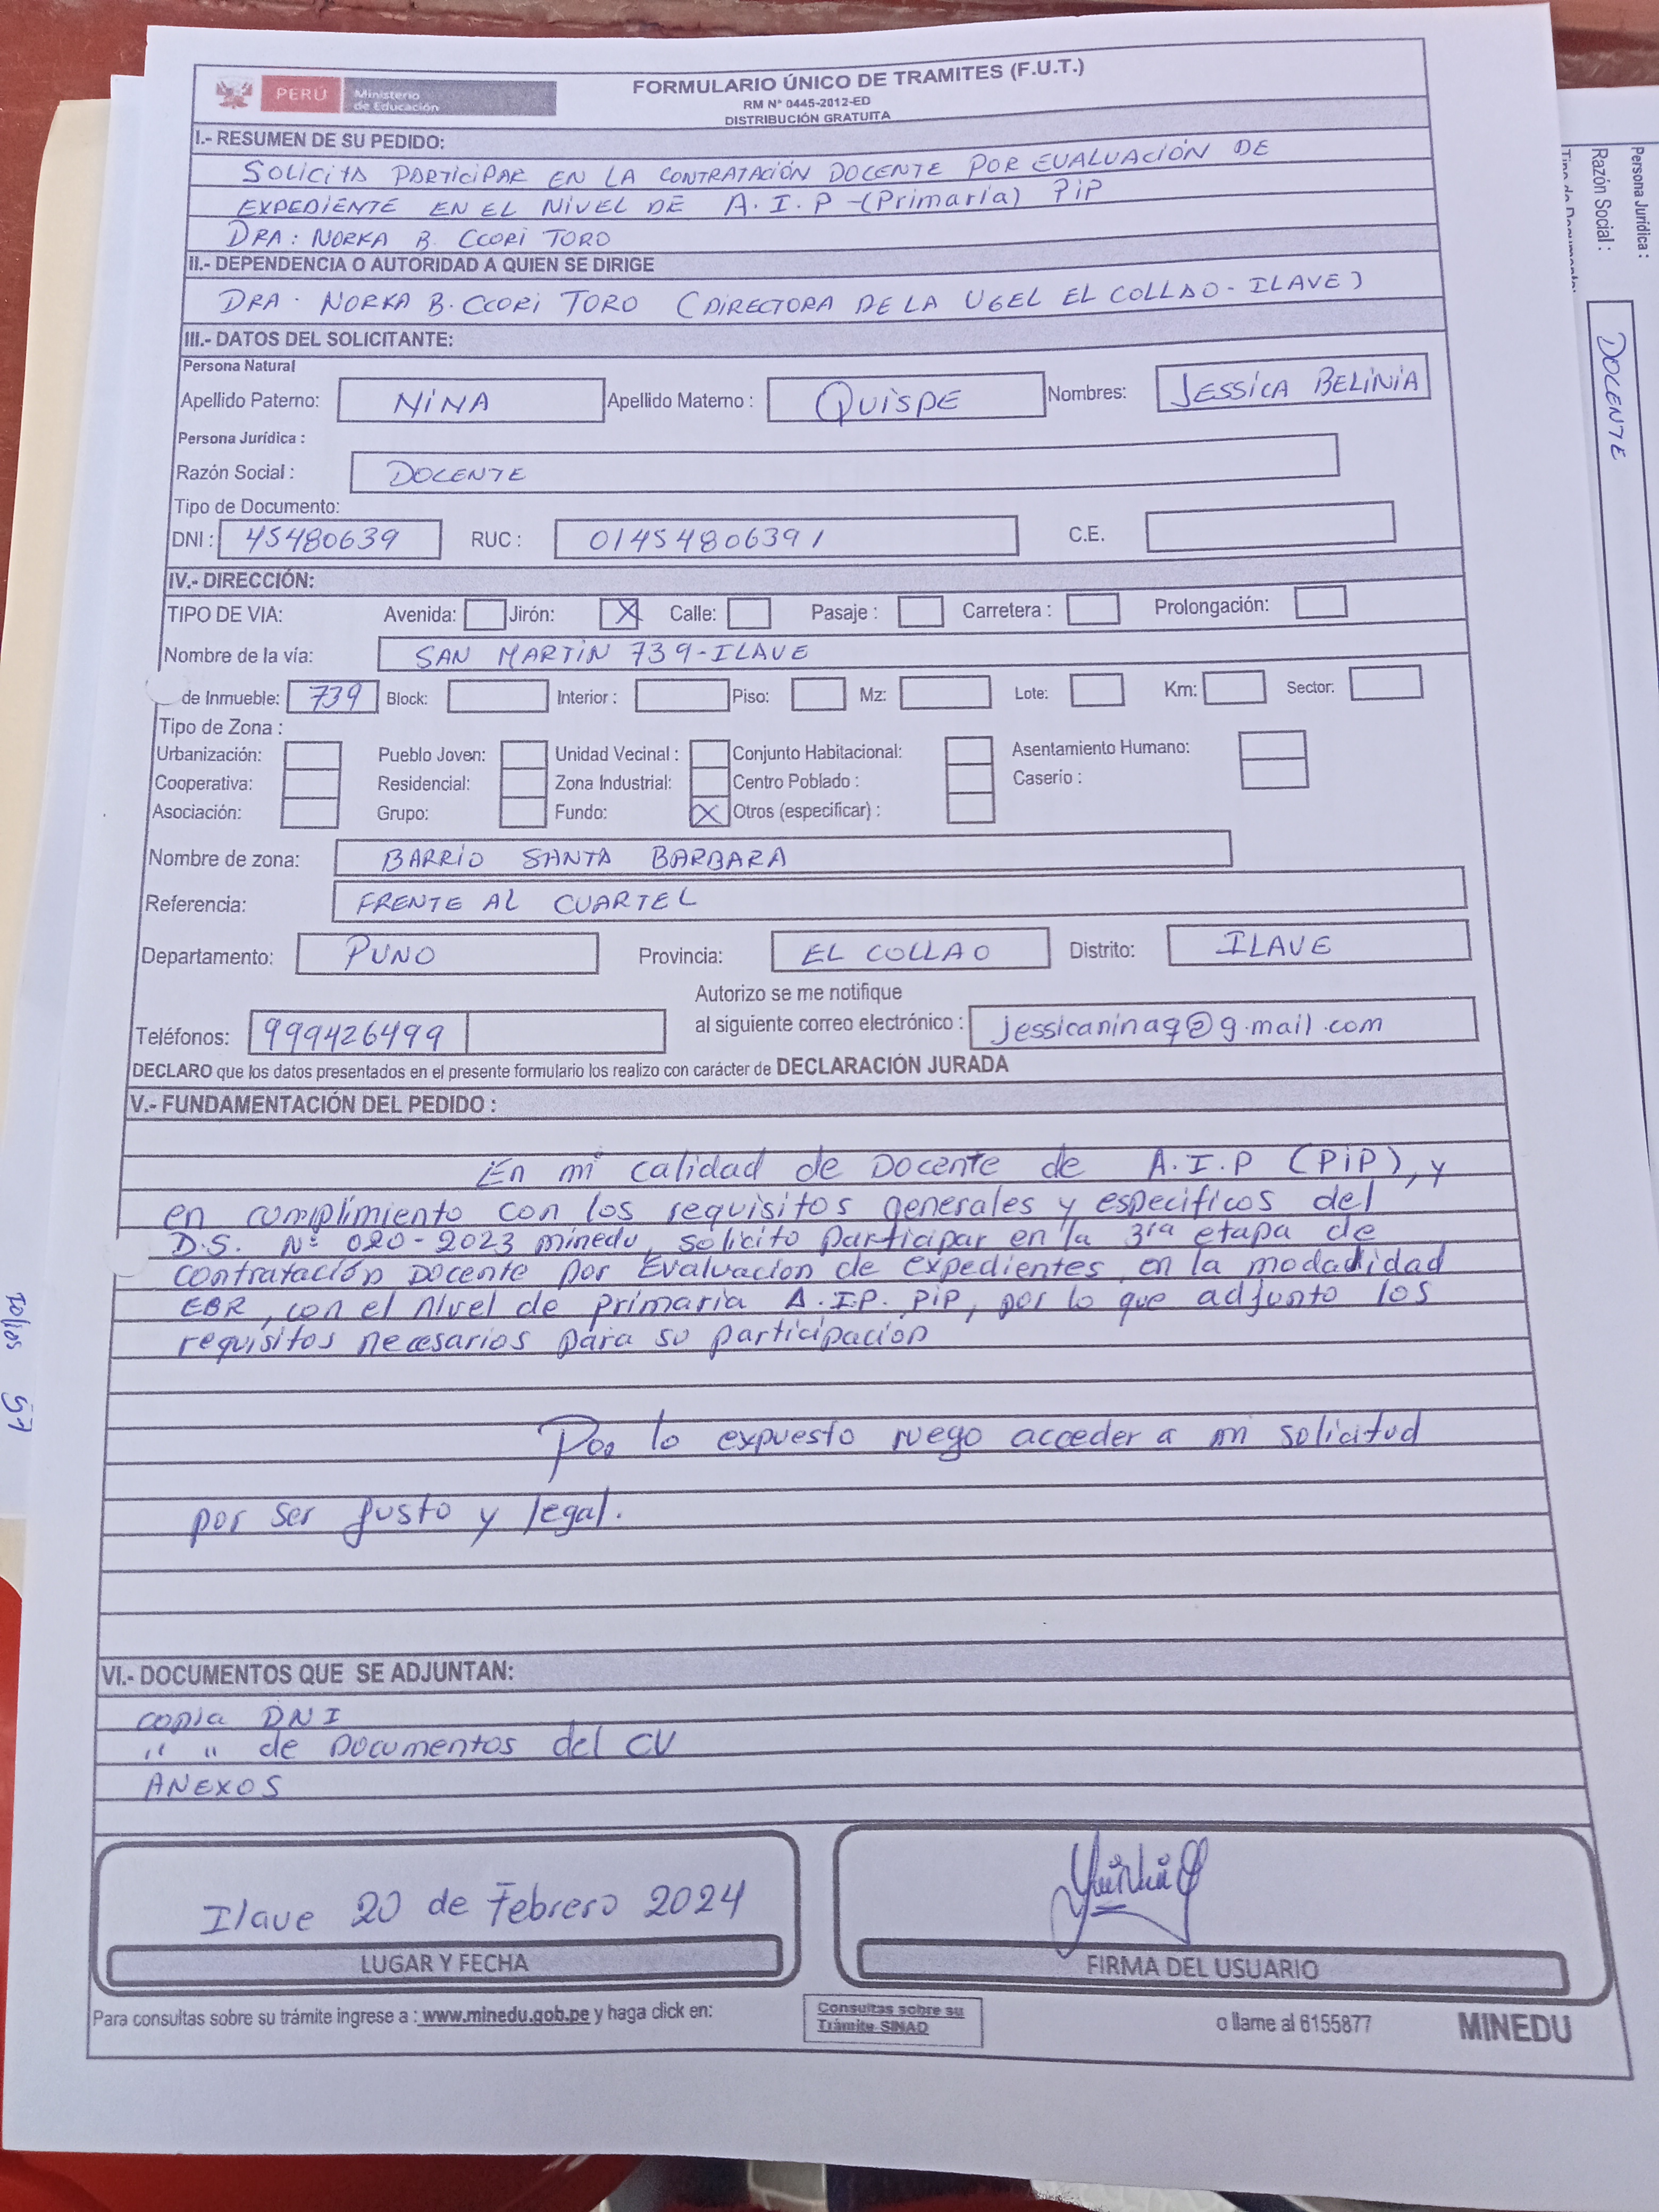 PERÚ Ministerio de Educación
FORMULARIO ÚNICO DE TRAMITES (F.U.T.)
RM N° 0445-2012-ED
DISTRIBUCIÓN GRATUITA
I.- RESUMEN DE SU PEDIDO:
SOLICITA PARTICIPAR EN LA CONTRATACIÓN DOCENTE POR EVALUACIÓN DE
EXPEDIENTE EN EL NIVEL DE A.I.P-(Primaria) PIP
DRA: NORKA B. CCORI TORO
II.- DEPENDENCIA O AUTORIDAD A QUIEN SE DIRIGE
DRA. NORKA B. CCORI TORO (DIRECTORA DE LA UGEL EL COLLAO - ILAVE)
III.- DATOS DEL SOLICITANTE:
Persona Natural
Apellido Paterno: NINA Apellido Materno : QUISPE Nombres: JESSICA BELINIA
Persona Jurídica :
Razón Social : DOCENTE
Tipo de Documento:
DNI : 45480639 RUC : 01454806391 C.E.
IV.- DIRECCIÓN:
TIPO DE VIA: Avenida: Jirón: X Calle: Pasaje : Carretera : Prolongación:
Nombre de la vía: SAN MARTIN 739-ILAVE
de Inmueble: 739 Block: Interior : Piso: Mz: Lote: Km: Sector:
Tipo de Zona :
Urbanización: Pueblo Joven: Unidad Vecinal : Conjunto Habitacional: Asentamiento Humano:
Cooperativa: Residencial: Zona Industrial: Centro Poblado : Caserio :
Asociación: Grupo: Fundo: X Otros (especificar) :
Nombre de zona: BARRIO SANTA BARBARA
Referencia: FRENTE AL CUARTEL
Departamento: PUNO Provincia: EL COLLAO Distrito: ILAVE
Autorizo se me notifique
Teléfonos: 999426499 al siguiente correo electrónico : jessicaninaq@g.mail.com
DECLARO que los datos presentados en el presente formulario los realizo con carácter de DECLARACIÓN JURADA
V.- FUNDAMENTACIÓN DEL PEDIDO :
En mi calidad de Docente de A.I.P (PIP), y
en cumplimiento con los requisitos generales y especificos del
D.S. N° 020-2023 minedu, solicito participar en la 3ra etapa de
contratación Docente por Evaluacion de expedientes, en la modadidad
EBR, con el nivel de primaria A.IP. PIP, por lo que adjunto los
requisitos necesarios para su participación
Por lo expuesto ruego acceder a mi solicitud
por ser justo y legal.
VI.- DOCUMENTOS QUE SE ADJUNTAN:
copia DNI
" " de Documentos del CV
ANEXOS
Ilave 20 de Febrero 2024
LUGAR Y FECHA
FIRMA DEL USUARIO
Para consultas sobre su trámite ingrese a : www.minedu.gob.pe y haga click en:
Consultas sobre su
Trámite SINAD
o llame al 6155877 MINEDU
Persona Jurídica :
Razón Social : DOCENTE
folios 57